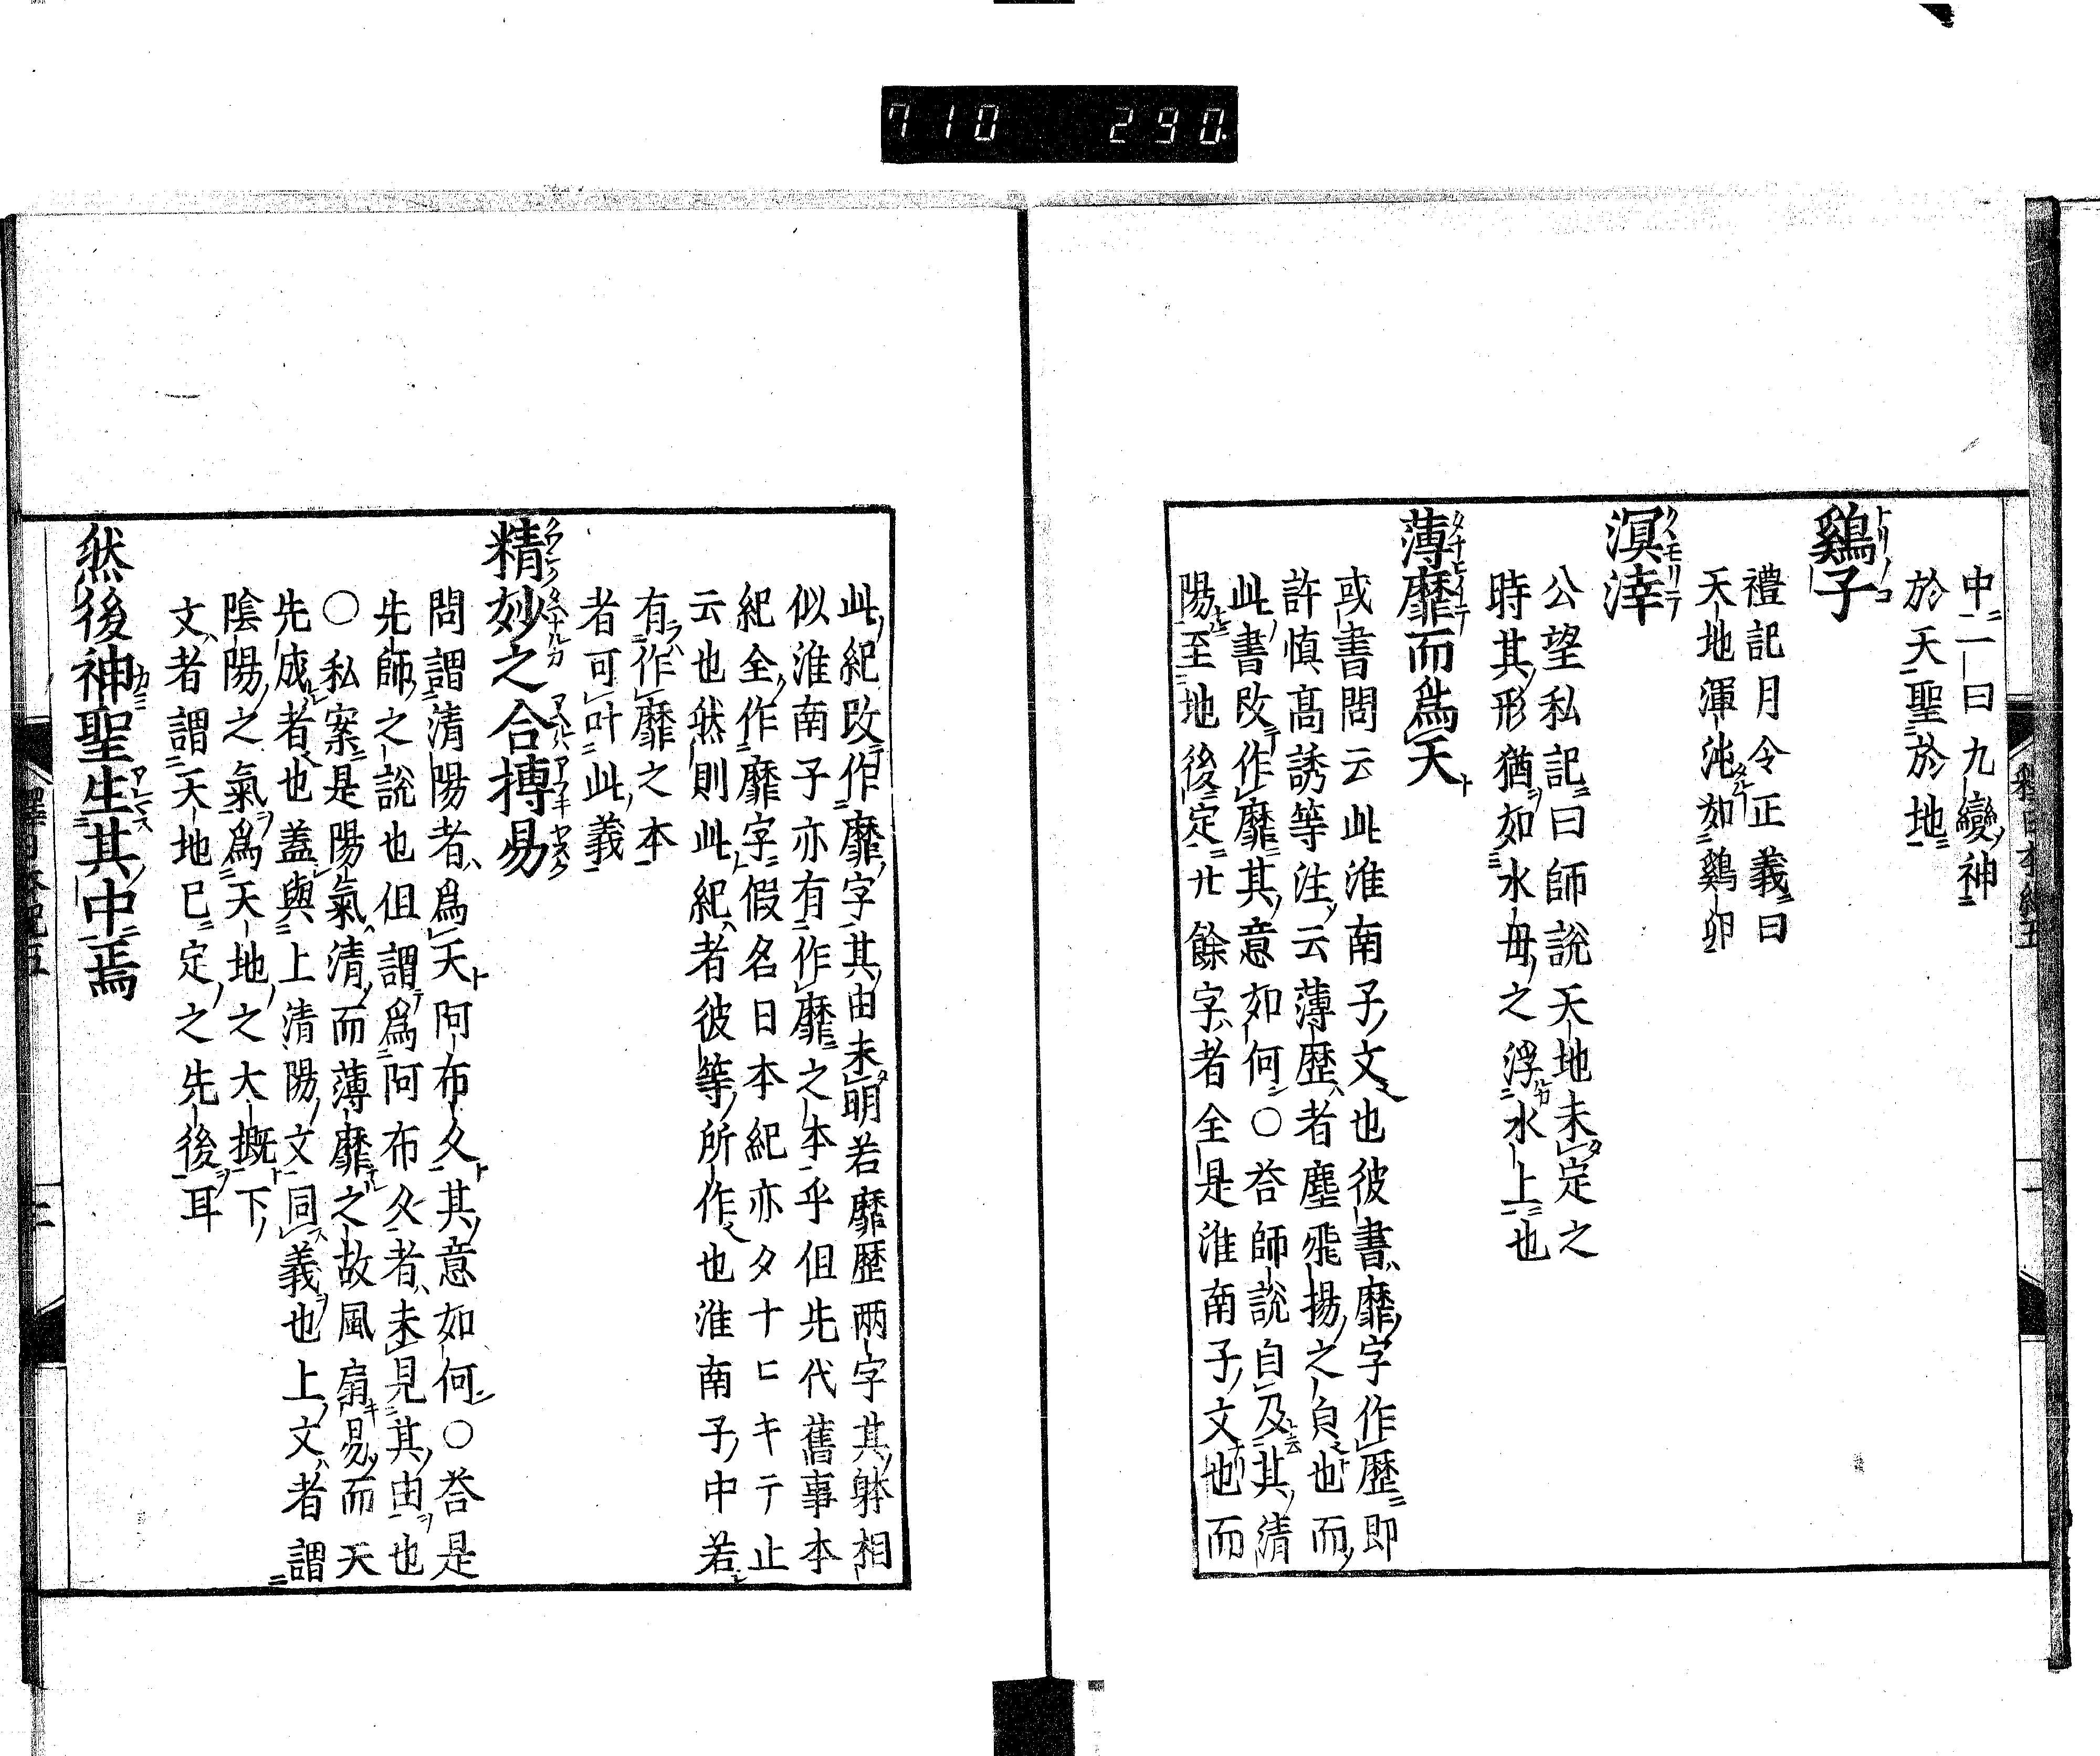 710 290
中二曰九變神
於天聖於地
鷄子
禮記月令正義曰
天地渾沌如鷄卵
溟涬
公望私記曰師說天地未定之
時其形猶如水母之浮水上也
薄靡而爲天
或書問云此淮南子文也彼書靡字作歷即
許慎高誘等注云薄歷者塵飛揚之皃也而
此書改作靡其意如何○荅師說自及其清
陽至地後定廿餘字者全是淮南子文也而
此紀改作靡字其由未明若靡歷兩字其躰相
似淮南子亦有作靡之本乎但先代舊事本
紀全作靡字假名日本紀亦タナヒキテ止
云也然則此紀者彼等所作也淮南子中若
有作靡之本
者可叶此義
精妙之合搏易
問謂清陽者爲天阿布久其意如何○荅是
先師之說也但謂爲阿布久者未見其由也
○私案是陽氣清而薄靡之故風扇易而天
先成者也盖與上清陽文同義也上文者謂
陰陽之氣爲天地之大概下
文者謂天地已定之先後耳
然後神聖生其中焉
釋日本紀五
二